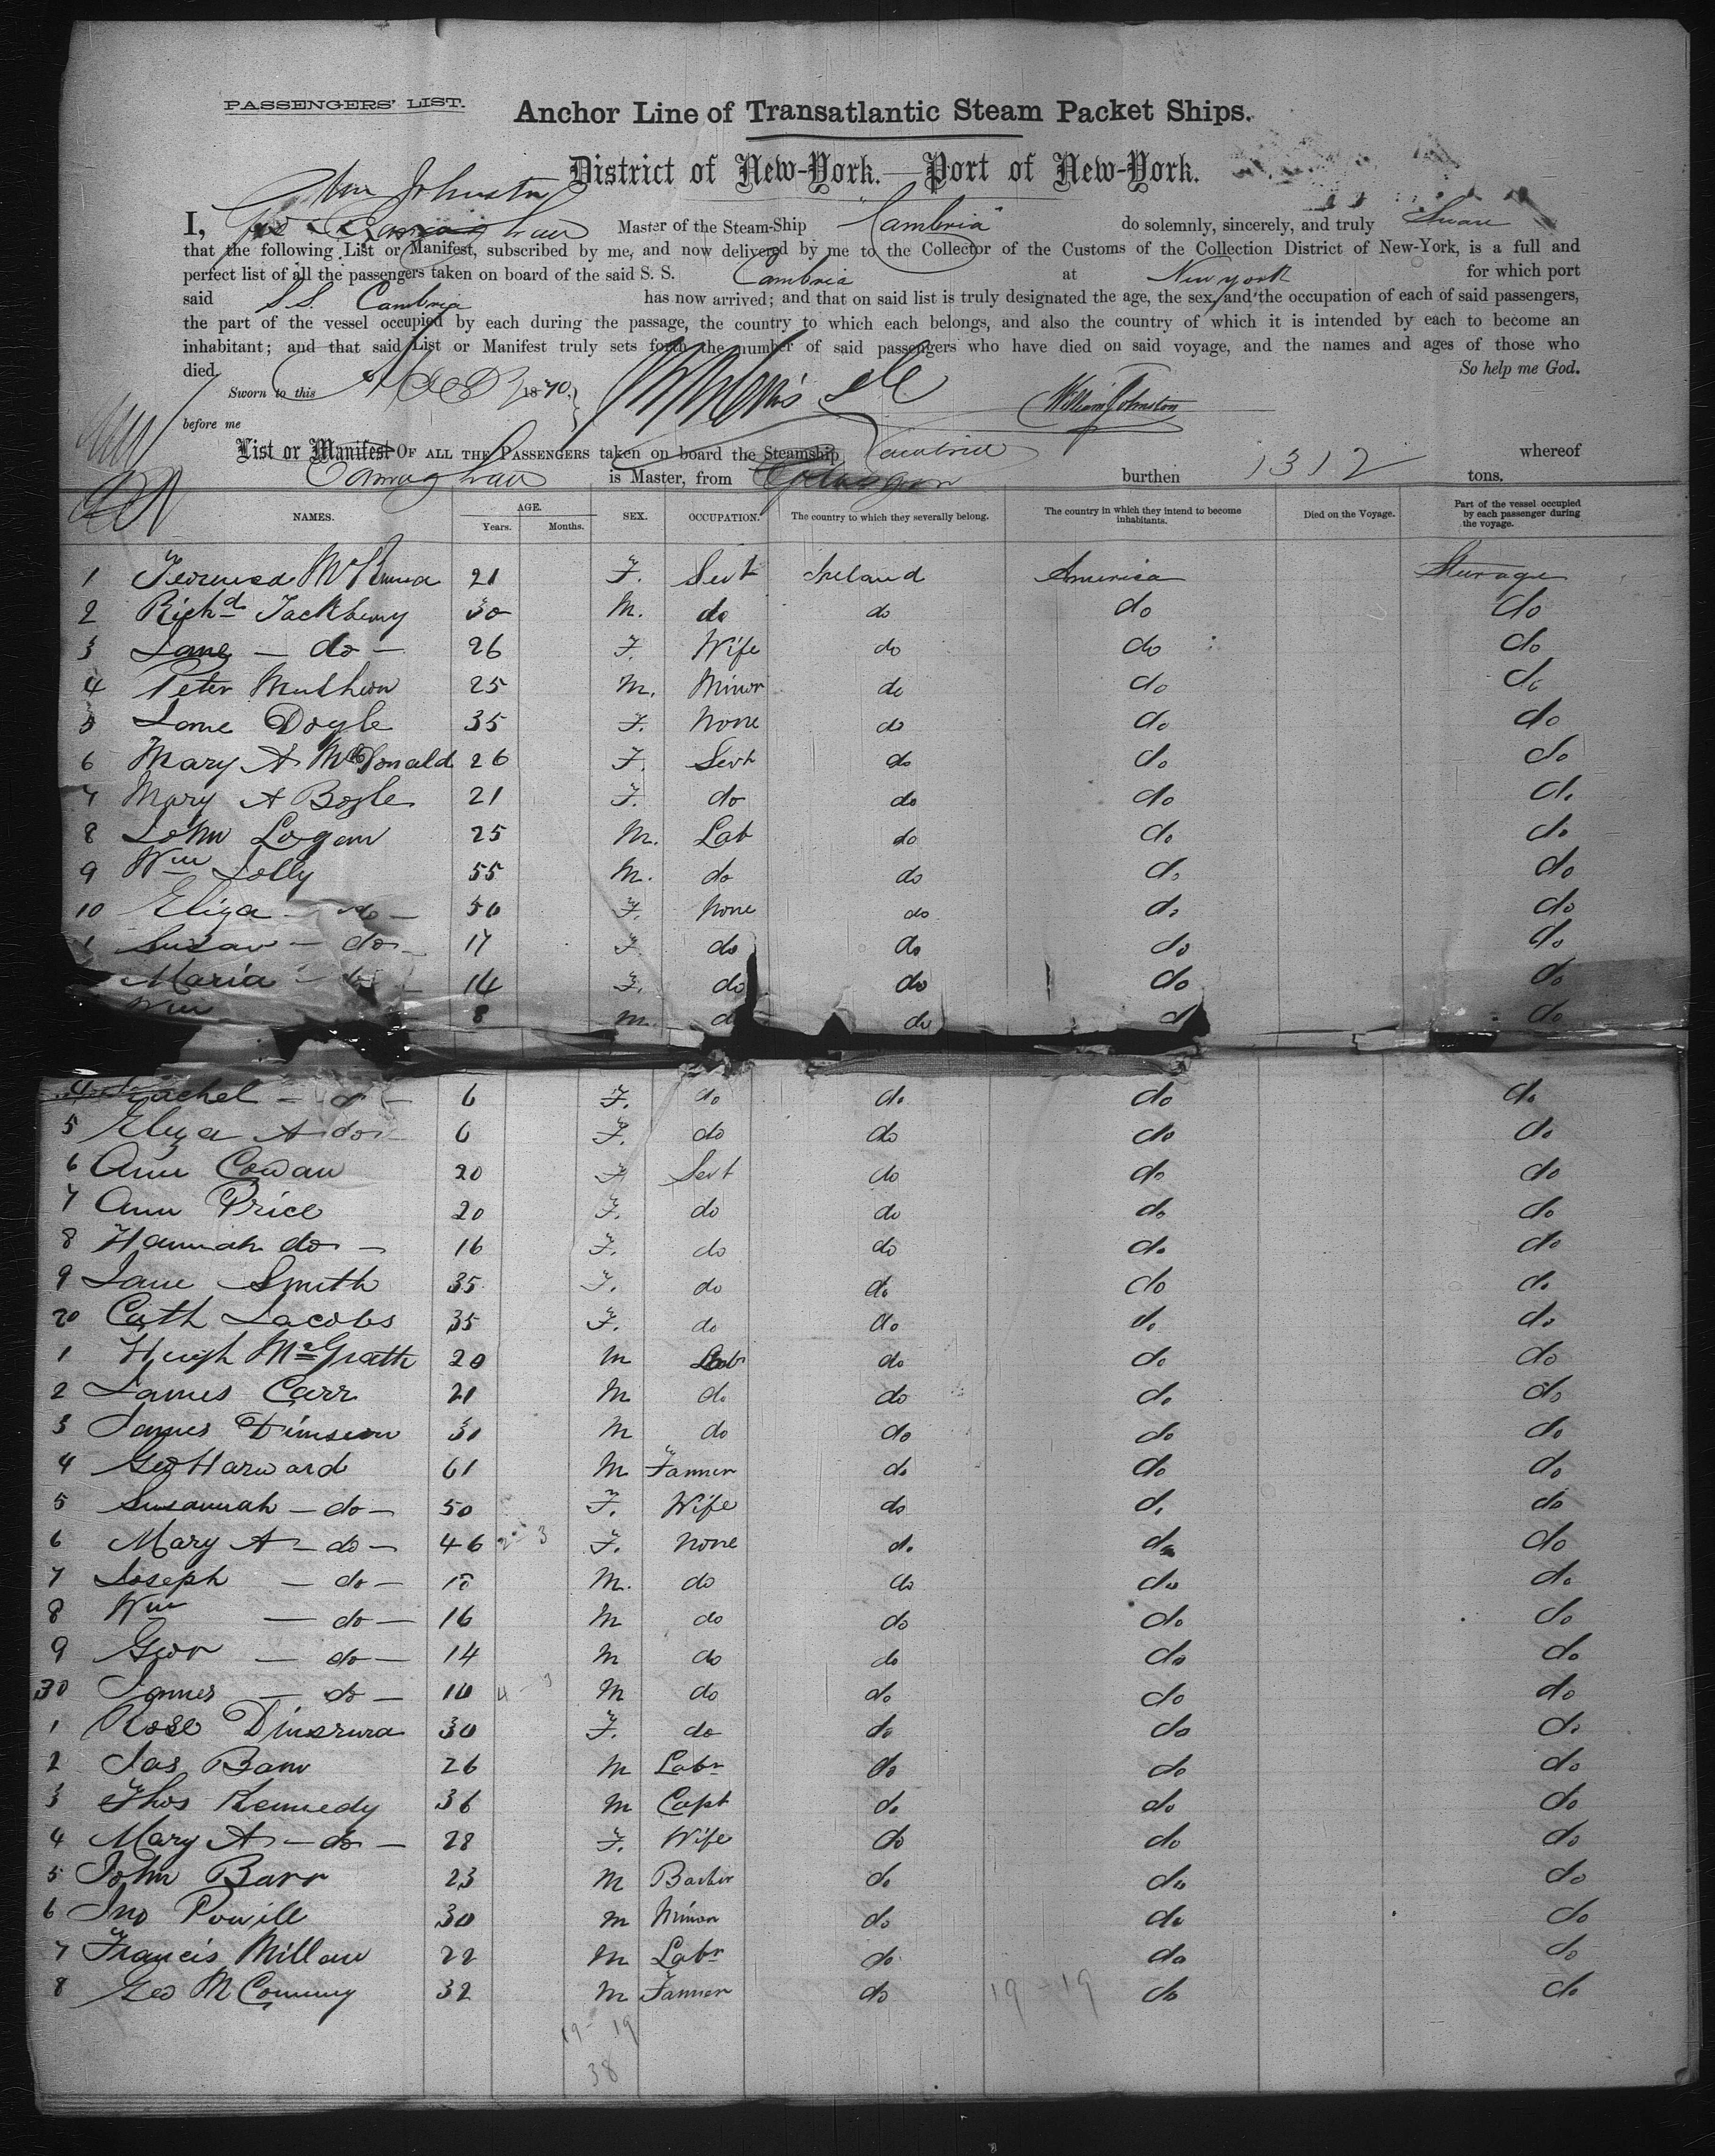 PASSENGERS' LIST.
Anchor Line of Transatlantic Steam Packet Ships.
District of New-York.—Port of New-York.
Wm Johnston
I, Master of the Steam-Ship "Cambria" do solemnly, sincerely, and truly Swear
that the following List or Manifest, subscribed by me, and now delivered by me to the Collector of the Customs of the Collection District of New-York, is a full and
perfect list of all the passengers taken on board of the said S. S. Cambria at New york for which port
said S.S. Cambria has now arrived; and that on said list is truly designated the age, the sex, and the occupation of each of said passengers,
the part of the vessel occupied by each during the passage, the country to which each belongs, and also the country of which it is intended by each to become an
inhabitant; and that said List or Manifest truly sets forth the number of said passengers who have died on said voyage, and the names and ages of those who
died. So help me God.
Sworn to this 1870.
William Johnston
before me
List or Manifest OF ALL THE PASSENGERS taken on board the Steamship Cambria whereof
Carnaghan is Master, from Glasgow burthen 1312 tons.
NAMES. AGE. Years. Months. SEX. OCCUPATION. The country to which they severally belong. The country in which they intend to become inhabitants. Died on the Voyage. Part of the vessel occupied by each passenger during the voyage.
1 21 F. Sevt Ireland America Sterage
2 Richd Tackberry 30 M. do do do do
3 Jane — do — 26 F. Wife do do do
4 Peter 25 M. Minor do do do
5 Jane Doyle 35 F. None do do do
6 Mary A McDonald 26 F. Sevt do do do
7 Mary A Boyle 21 F. do do do do
8 John Logan 25 M. Lab do do do
9 Wm Jolly 55 M. do do do do
10 Eliza — do — 50 F. None do do do
1 Suzan — do — 17 F do do do do
Maria — do — 14 F. do do do do
Wm 8 M. do do d do
4 Rachel — do — 6 F. do do do do
5 Eliza A do — 6 F. do do do do
6 Ann Cowan 20 F Sevt do do do
7 Ann Price 20 F. do do do do
8 Hannah do — 16 F. do do do do
9 Jane Smith 35 F. do do do do
20 Cath Jacobs 35 F. do do do do
1 Hugh McGrath 20 M Labr do do do
2 James Carr 21 M do do do do
3 James 31 M do do do do
4 Geo Harward 61 M Farmer do do do
5 Susannah — do — 50 F. Wife do do do
6 Mary A — do — 46 2 - 3 F. None do do do
7 Joseph — do — 18 M. do do do do
8 Wm — do — 16 M do do do do
9 Geor — do — 14 M do do do do
30 James — do — 10 4 - 3 M do do do do
1 Rose 30 F. do do do do
2 Jas 26 M Labr do do do
3 Thos Kennedy 36 M Capt do do do
4 Mary A — do — 28 F. Wife do do do
5 John Barr 23 M Barber do do do
6 Jno Powill 30 M Minor do do do
7 Francis Millan 22 M Labr do do do
8 Geo 32 M Farmer do 19 - 19 do do
19 - 19
38